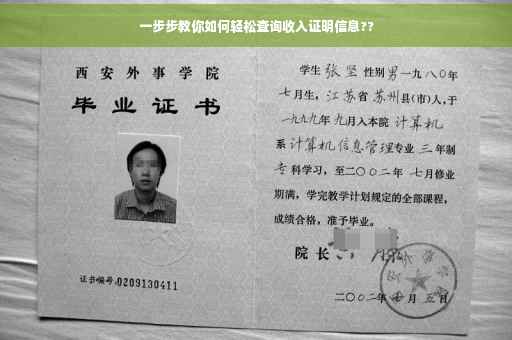 一步步教你如何轻松查询收入证明信息??
西安外事学院
毕业证书
证书编号:0209130411
学生 张坚 性别 男 一九八〇年
七月生, 江苏省 苏州县(市)人,于
一九九九年九月入本院 计算机
系 计算机信息管理专业 三 年制
专科学习,至二〇〇二年 七月修业
期满,学完教学计划规定的全部课程,
成绩合格,准予毕业。
院长
二〇〇二年 月 五日